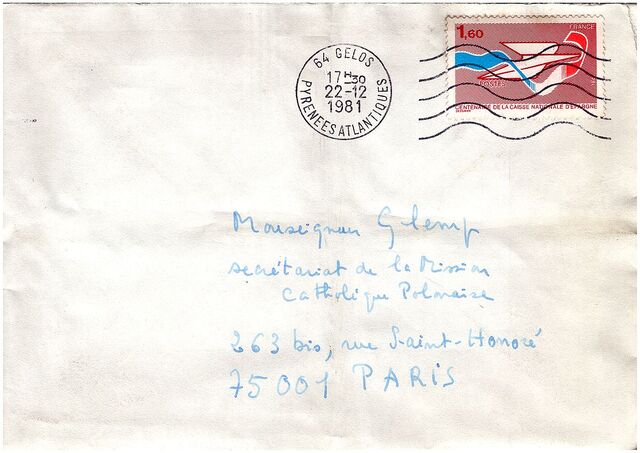 64 GELOS
17H30
22-12
1981
PYRENEES ATLANTIQUES
1,60
FRANCE
POSTES
CENTENAIRE DE LA CAISSE NATIONALE D'EPARGNE
Monseigneur Glemp
secrétariat de la Mission
Catholique Polonaise
263 bis, rue Saint-Honoré
75001 PARIS